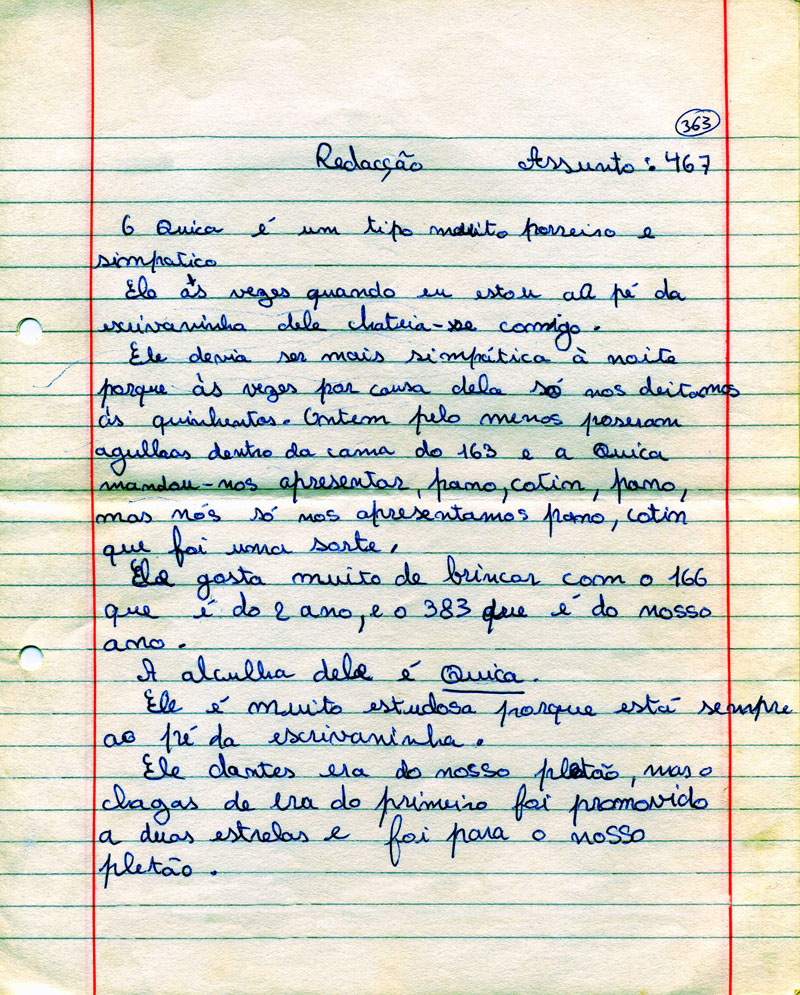 363
Redacção Assunto: 467
O Quica é um tipo muito porreiro e
simpatico
Ele às vezes quando eu estou ao pé da
escrivaninha dele chateia-se comigo.
Ele devia ser mais simpática à noite
porque às vezes por causa dela só nos deitamos
ás quinhentas. Ontem pelo menos poseram
agullhas dentro da cama do 163 e a Quica
mandou-nos apresentar, pano, cotin, pano,
mas nós só nos apresentamos pano, cotin
que foi uma sorte.
Ele gosta muito de brincar com o 166
que é do 2 ano, e o 383 que é do nosso
ano.
A alculha dele é Quica.
Ele é muito estudosa porque está sempre
ao pé da escrivaninha.
Ele dantes era do nosso pletão, mas o
chagas de era do primeiro foi promovido
a duas estrelas e foi para o nosso
pletão.